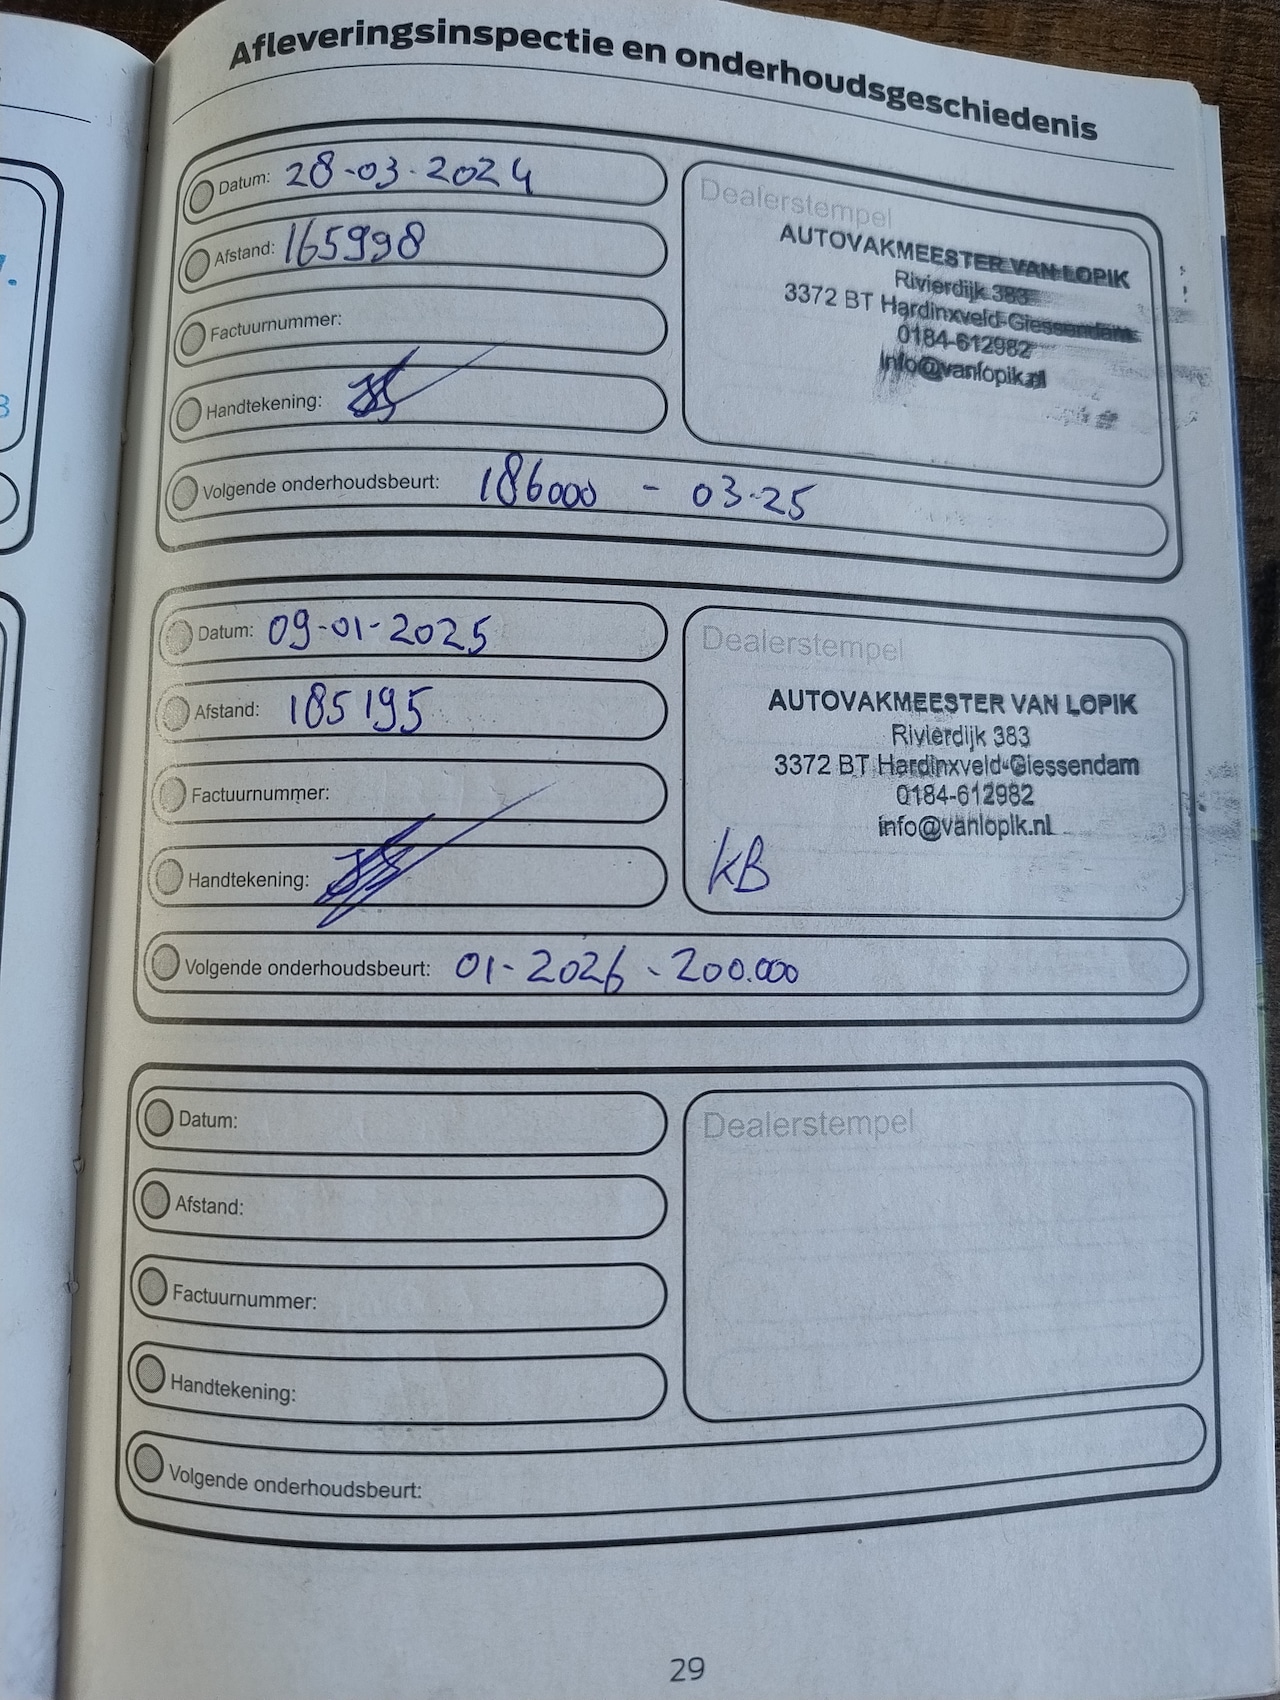 Afleveringsinspectie en onderhoudsgeschiedenis
Datum: 28-03-2024
Afstand: 165998
Factuurnummer:
Handtekening:
Volgende onderhoudsbeurt: 186000 - 03-25
Dealerstempel
AUTOVAKMEESTER VAN LOPIK
Rivierdijk 383
3372 BT Hardinxveld-Giessendam
0184-612982
info@vanlopik.nl
Datum: 09-01-2025
Afstand: 185195
Factuurnummer:
Handtekening:
Volgende onderhoudsbeurt: 01-2026 - 200.000
Dealerstempel
AUTOVAKMEESTER VAN LOPIK
Rivierdijk 383
3372 BT Hardinxveld-Giessendam
0184-612982
info@vanlopik.nl
KB
Datum:
Afstand:
Factuurnummer:
Handtekening:
Volgende onderhoudsbeurt:
Dealerstempel
29